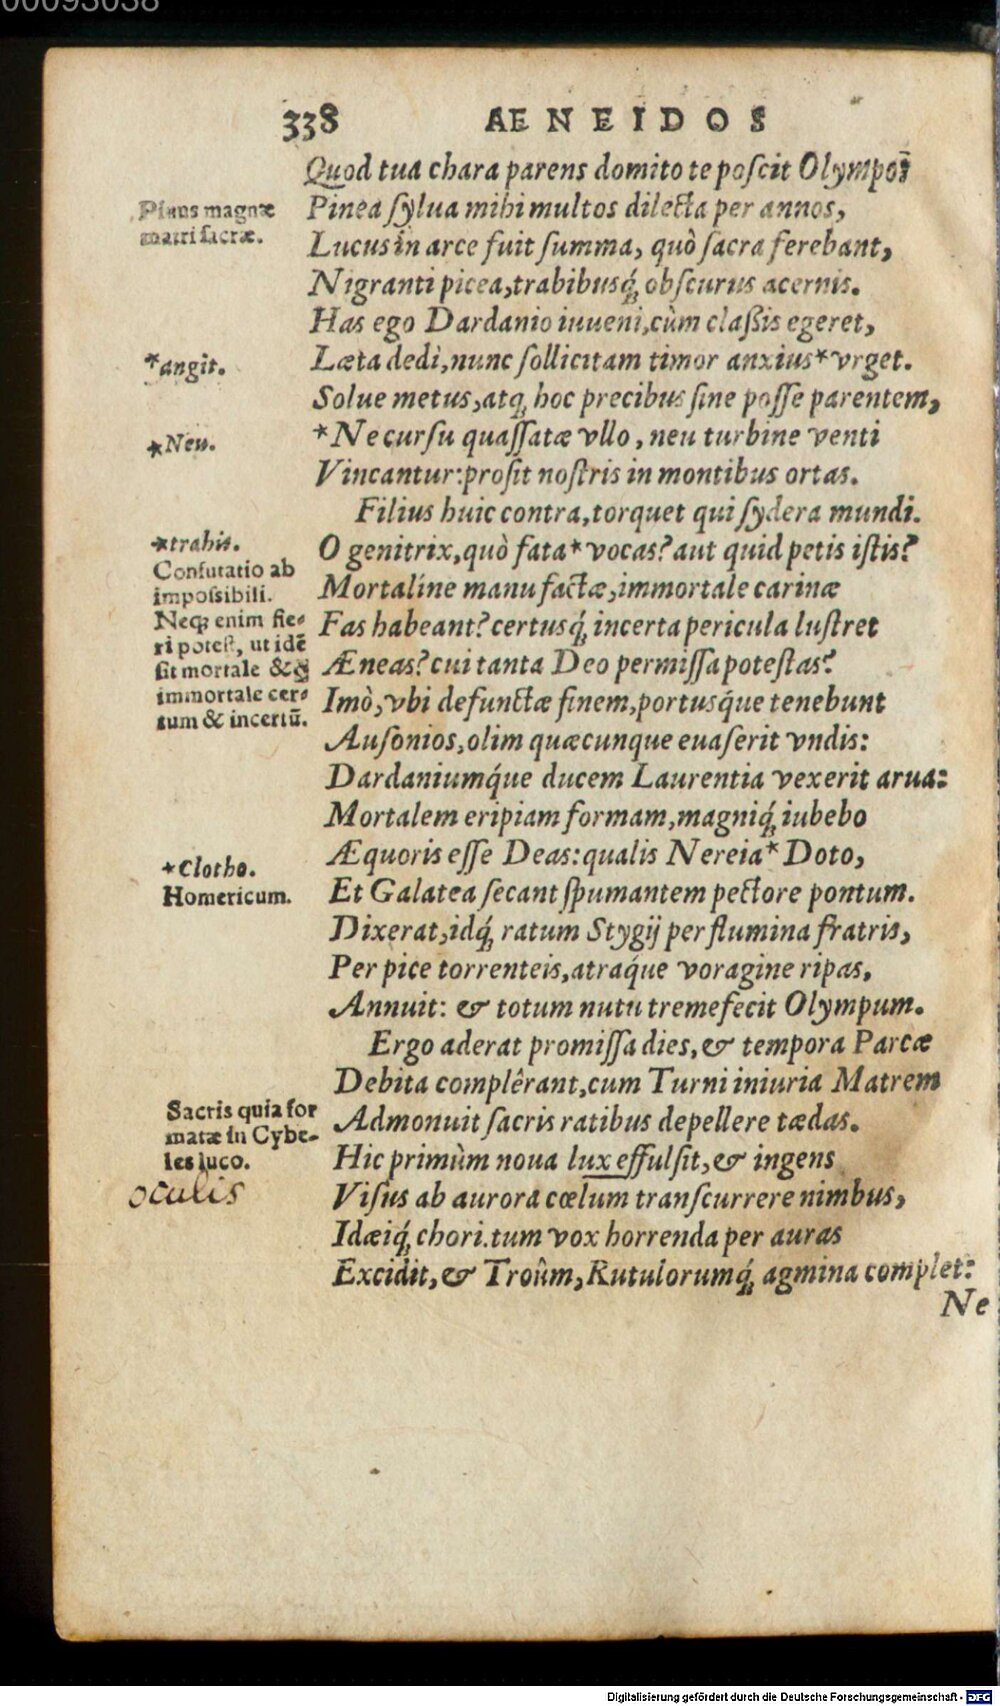 00093038
338 AENEIDOS
Quod tua chara parens domito te poſcit Olympo?
Pinus magnæ
matri ſacræ.
Pinea ſylua mihi multos dilecta per annos,
Lucus in arce fuit ſumma, quò ſacra ferebant,
Nigranti picea, trabibusq́; obſcurus acernis.
Has ego Dardanio iuueni, cùm claßis egeret,
*angit.
Læta dedi, nunc ſollicitam timor anxius* vrget.
Solue metus, atq; hoc precibus ſine poſſe parentem,
*Neu.
*Ne curſu quaſſatæ vllo, neu turbine venti
Vincantur: proſit noſtris in montibus ortas.
Filius huic contra, torquet qui ſydera mundi.
*trahis.
O genitrix, quò fata* vocas? aut quid petis iſtis?
Confutatio ab
impoſsibili.
Neq; enim fie-
ri poteſt, ut idẽ
ſit mortale & q̃
immortale cer-
tum & incertũ.
Mortalíne manu factæ, immortale carinæ
Fas habeant? certusq́; incerta pericula luſtret
Æneas? cui tanta Deo permiſſa poteſtas?
Imò, vbi defunctæ finem, portusq́ue tenebunt
Auſonios, olim quæcunque euaſerit vndis:
Dardaniumq́ue ducem Laurentia vexerit arua:
Mortalem eripiam formam, magniq́; iubebo
*Clotho.
Homericum.
Æquoris eſſe Deas: qualis Nereia* Doto,
Et Galatea ſecant ſpumantem pectore pontum.
Dixerat, idq́; ratum Stygij per flumina fratris,
Per pice torrenteis, atraq́ue voragine ripas,
Annuit: & totum nutu tremefecit Olympum.
Ergo aderat promiſſa dies, & tempora Parcæ
Debita complêrant, cum Turni iniuria Matrem
Sacris quia for
matæ in Cybe-
les luco.
Admonuit ſacris ratibus depellere tædas.
Hic primùm noua lux effulſit, & ingens
oculis
Viſus ab aurora cœlum transcurrere nimbus,
Idæiq́; chori. tum vox horrenda per auras
Excidit, & Troûm, Rutulorumq́; agmina complet:
Ne
Digitalisierung gefördert durch die Deutsche Forschungsgemeinschaft - DFG